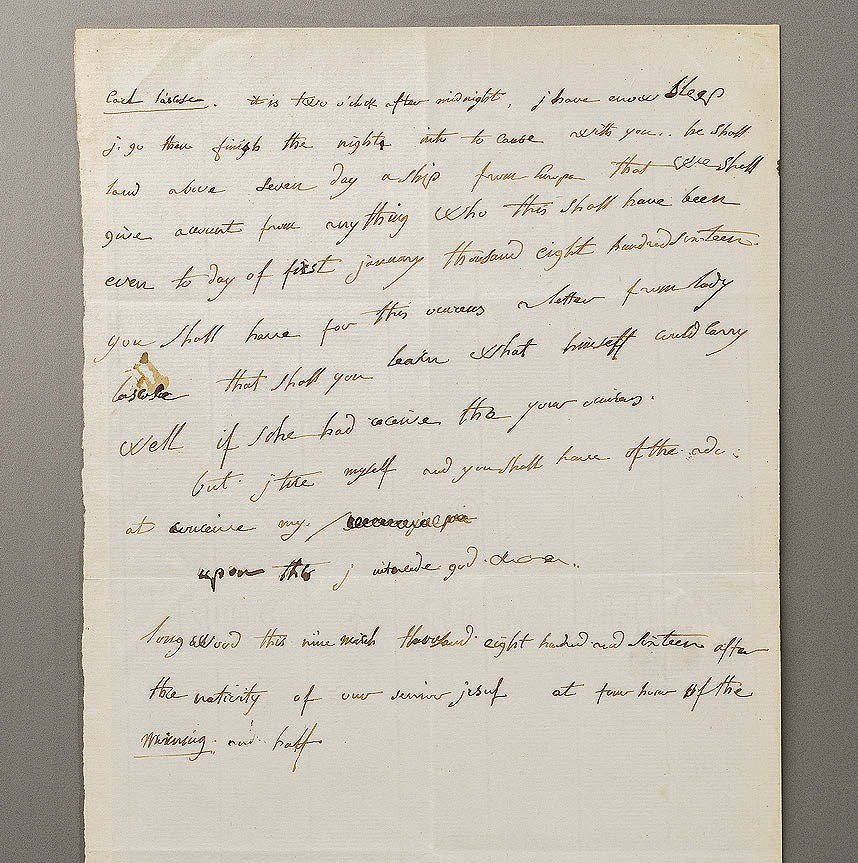 Count lascase. it is two o'clock after midnight, j have enow sleep
j go then finish the night into to cause with you.. he shall
land above seven day a ship from Europe that we shall
give account from anything who this shall have been
even to day of first january thousand eight hundred sixteen.
you shall have for this ocurens a letter from lady
lascase that shall you learn what himself could carry
well if sche had receive the your ocurens.
but j tire myself and you shall have of the ado..
at conceive my.
upon the j intercede god.
longwood this nine march thousand eight hundred and sixteen after
the nativity of our senior jesus at four hour of the
morning and half